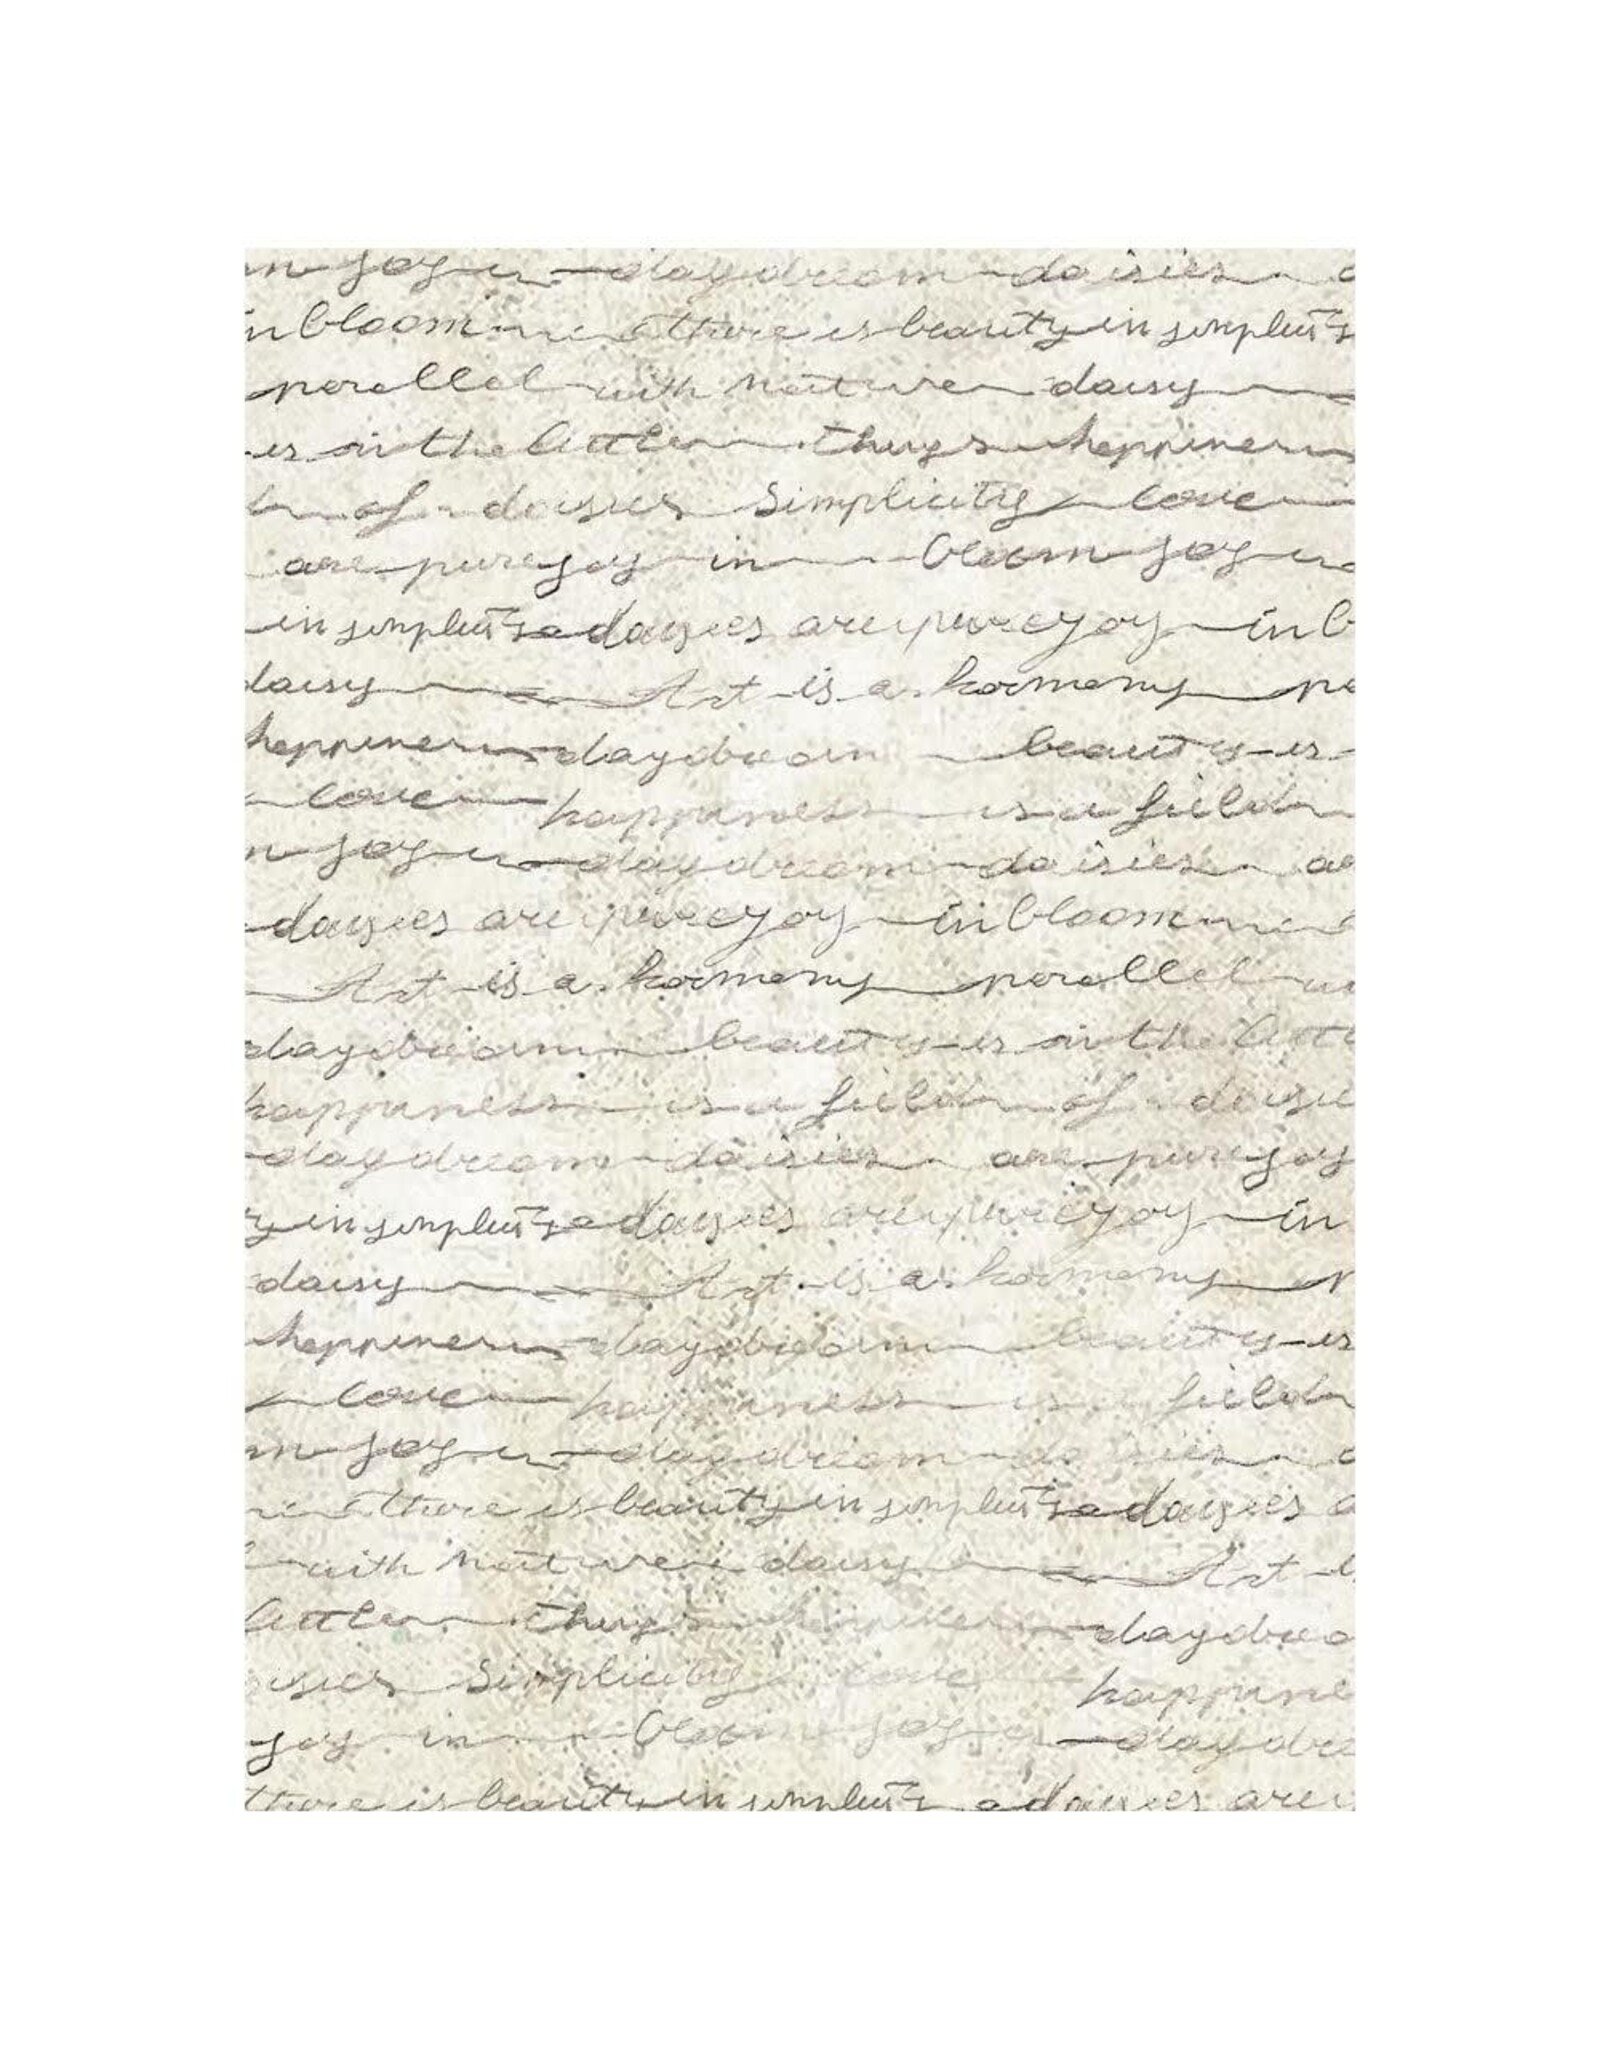 in joy in daydream daisies
in bloom there is beauty in simplicity
parallel with nature daisy
is in the little things happiness
of daisies simplicity love
are pure joy in bloom joy in
in simplicity daisies are pure joy in
daisy Art is a harmony
happiness daydream beauty is
love happiness is a field
joy in daydream daisies
daisies are pure joy in bloom
Art is a harmony parallel
daydream beauty is in the little
happiness is a field of daisies
daydream daisies are pure joy
in simplicity daisies are pure joy in
daisy Art is a harmony
happiness daydream beauty is
love happiness is a field
in joy in daydream daisies
there is beauty in simplicity daisies
with nature daisy Art
little things happiness daydrea
simplicity love happine
joy in bloom joy in daydre
there is beauty in simplicity daisies are